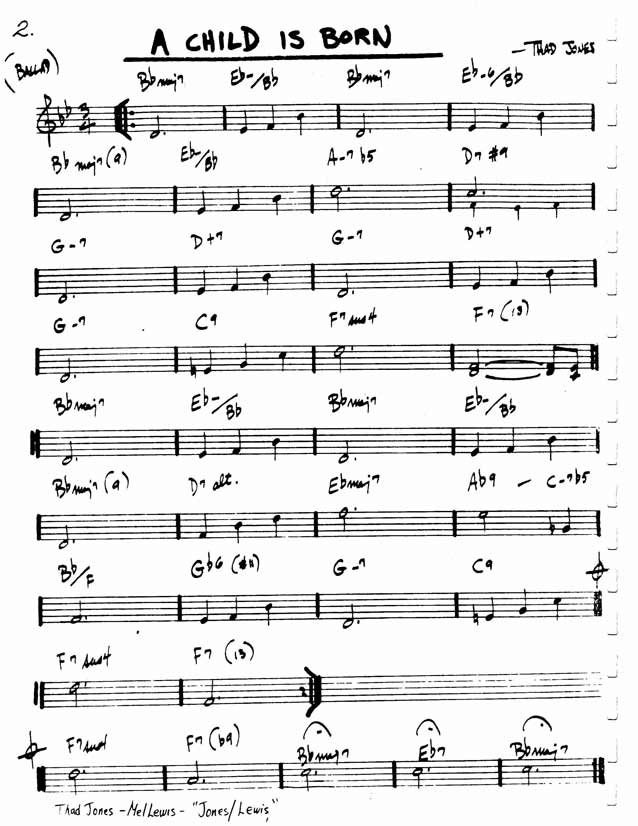 2.
A CHILD IS BORN
— THAD JONES
(BALLAD)
Bb maj7 Eb-/Bb Bb maj7 Eb-6/Bb
3
4
Bb maj7 (9) Eb-/Bb A-7 b5 D7 #9
G-7 D+7 G-7 D+7
G-7 C9 F7 sus4 F7 (13)
Bb maj7 Eb-/Bb Bb maj7 Eb-/Bb
Bb maj7 (9) D7 alt. Eb maj7 Ab9 — C-7b5
Bb/F Gb6 (#11) G-7 C9
F7 sus4 F7 (13)
2
F7 sus4 F7 (b9) Bb maj7 Eb7 Bb maj7
Thad Jones - Mel Lewis - "Jones/Lewis"